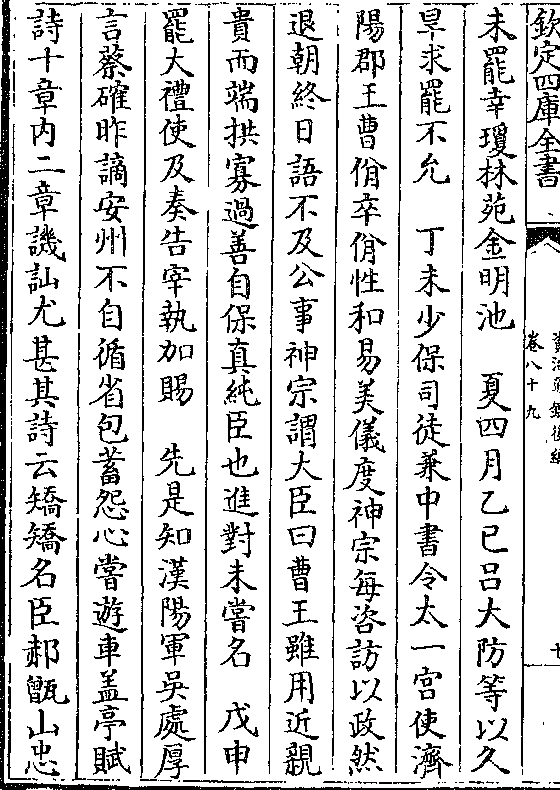 欽定四庫全書
卷八十九
未罷幸瓊林苑金明池　夏四月乙巳吕大防等以久
旱求罷不允　丁未少保司徒兼中書令太一宫使濟
陽郡王曹佾卒佾性和易美儀度神宗每咨訪以政然
退朝終日語不及公事神宗謂大臣曰曹王雖用近親
貴而端拱寡過善自保真純臣也進對未嘗名　戊申
罷大禮使及奏告宰執加賜　先是知漢陽軍吳處厚
言蔡確昨謫安州不自循省包蓄怨心嘗遊車盖亭賦
詩十章内二章譏訕尤甚其詩云矯矯名臣郝甑山忠